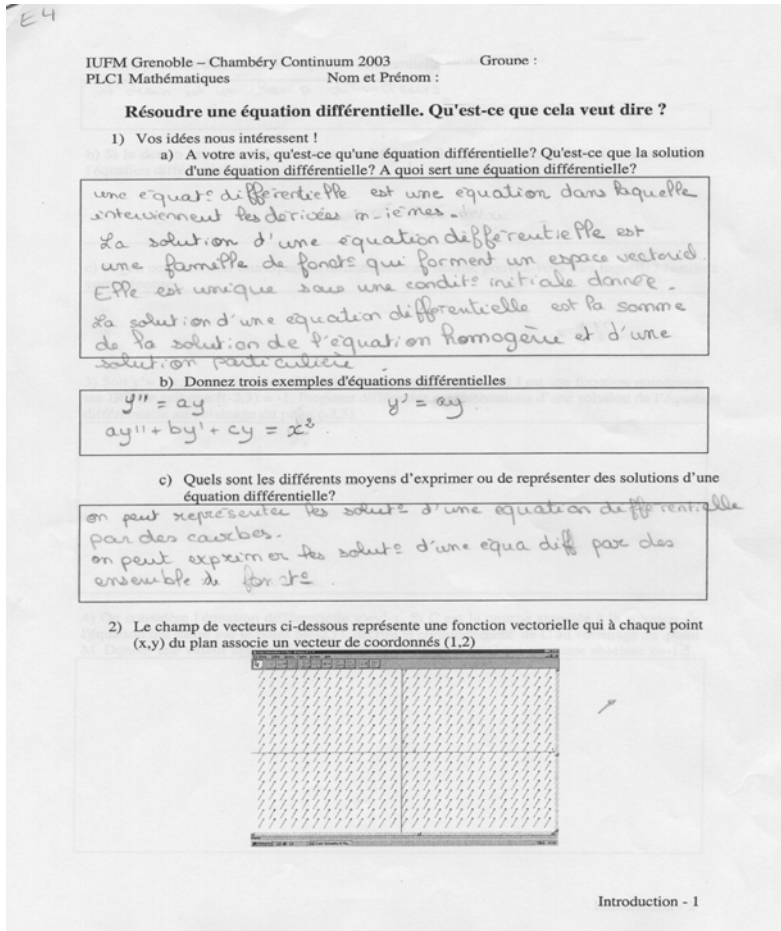 E4
IUFM Grenoble – Chambéry Continuum 2003 Groupe :
PLC1 Mathématiques Nom et Prénom :
Résoudre une équation différentielle. Qu'est-ce que cela veut dire ?
1) Vos idées nous intéressent !
a) A votre avis, qu'est-ce qu'une équation différentielle? Qu'est-ce que la solution
d'une équation différentielle? A quoi sert une équation différentielle?
une équat° différentielle est une équation dans laquelle
interviennent les dérivées n-ièmes.
La solution d'une équation différentielle est
une famille de fonct° qui forment un espace vectoriel.
Elle est unique sous une condit° initiale donnée.
La solution d'une equation différentielle est la somme
de la solution de l'équation homogène et d'une
solution particulière.
b) Donnez trois exemples d'équations différentielles
y'' = ay y' = ay.
ay'' + by' + cy = x².
c) Quels sont les différents moyens d'exprimer ou de représenter des solutions d'une
équation différentielle?
on peut représenter les solut° d'une equation différentielle
par des courbes.
on peut exprimer les solut° d'une équa diff par des
ensemble de fonct°.
2) Le champ de vecteurs ci-dessous représente une fonction vectorielle qui à chaque point
(x,y) du plan associe un vecteur de coordonnés (1,2)
Introduction - 1